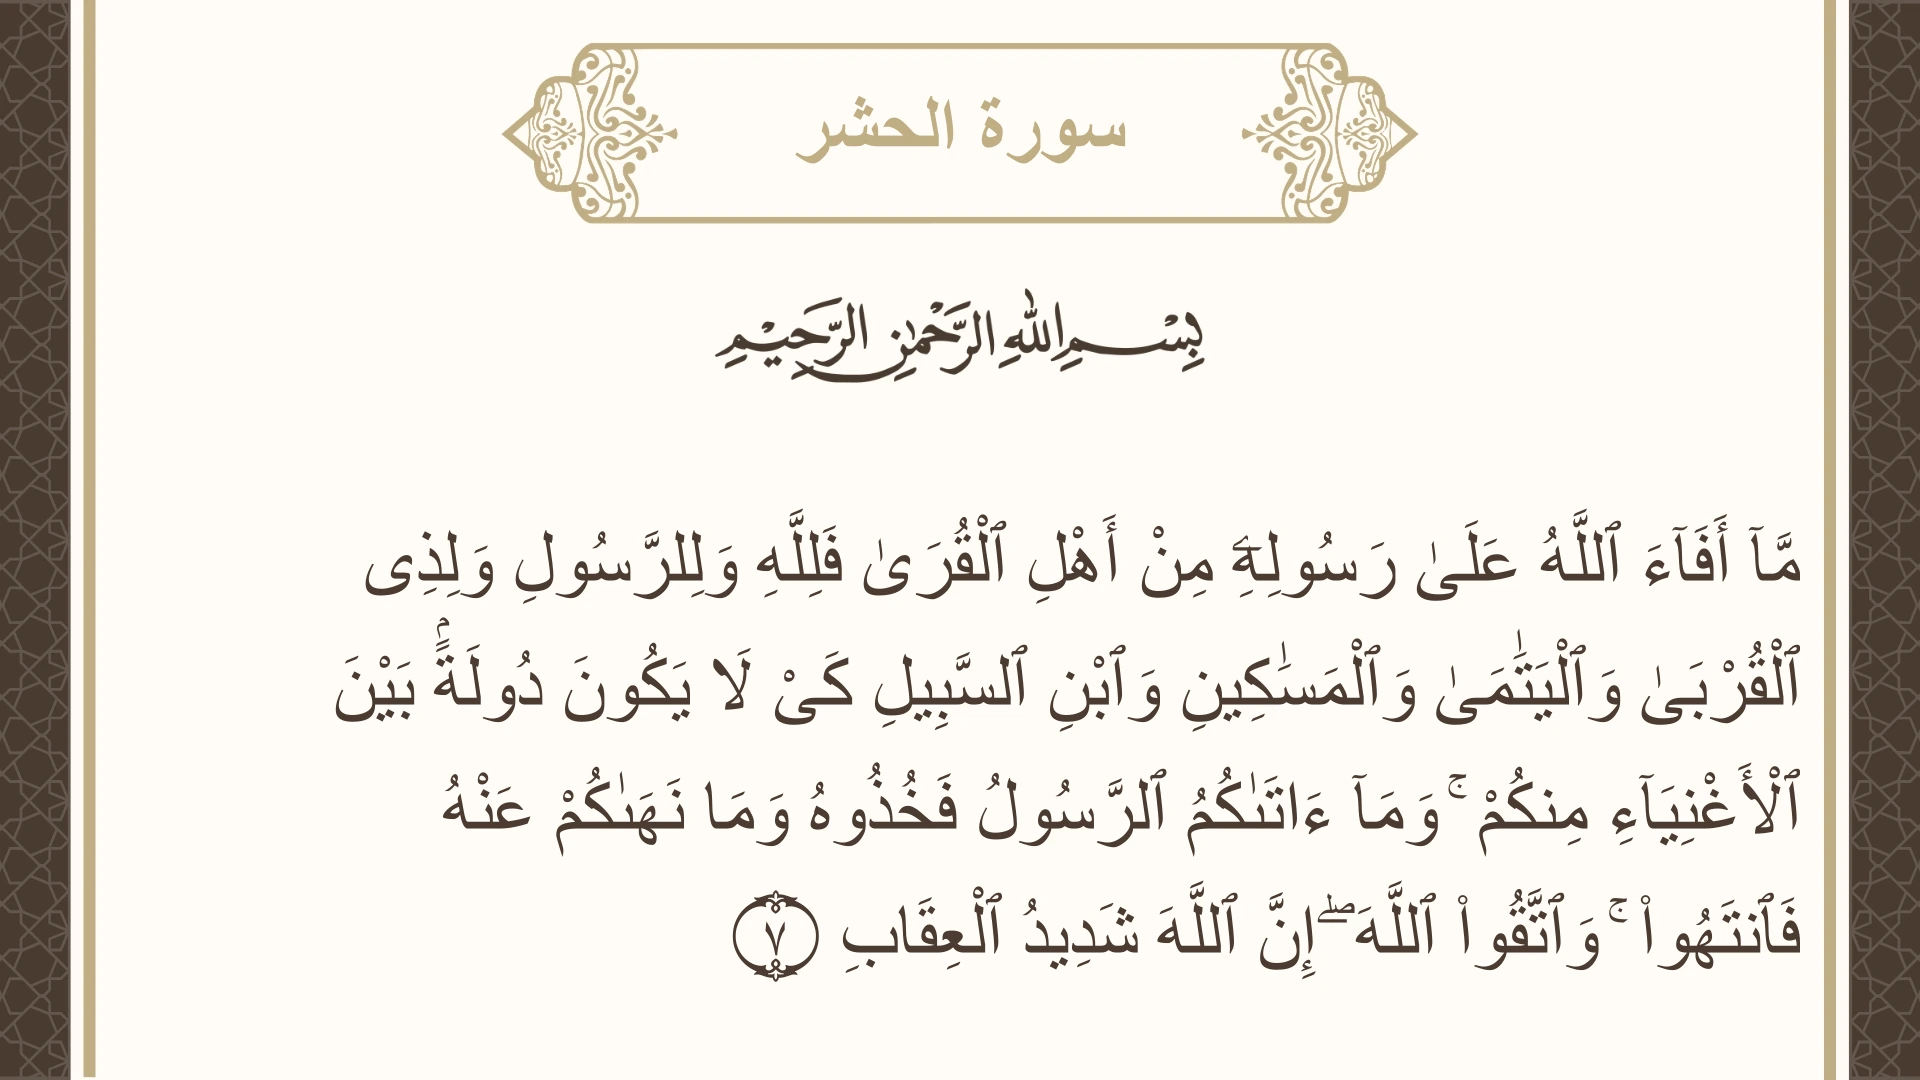 سورة الحشر
بِسْمِ اللهِ الرَّحْمٰنِ الرَّحِيْمِ
مَّآ أَفَآءَ ٱللَّهُ عَلَىٰ رَسُولِهِۦ مِنْ أَهْلِ ٱلْقُرَىٰ فَلِلَّهِ وَلِلرَّسُولِ وَلِذِى
ٱلْقُرْبَىٰ وَٱلْيَتَٰمَىٰ وَٱلْمَسَٰكِينِ وَٱبْنِ ٱلسَّبِيلِ كَىْ لَا يَكُونَ دُولَةًۢ بَيْنَ
ٱلْأَغْنِيَآءِ مِنكُمْ ۚ وَمَآ ءَاتَىٰكُمُ ٱلرَّسُولُ فَخُذُوهُ وَمَا نَهَىٰكُمْ عَنْهُ
فَٱنتَهُوا۟ ۚ وَٱتَّقُوا۟ ٱللَّهَ ۖ إِنَّ ٱللَّهَ شَدِيدُ ٱلْعِقَابِ ٧